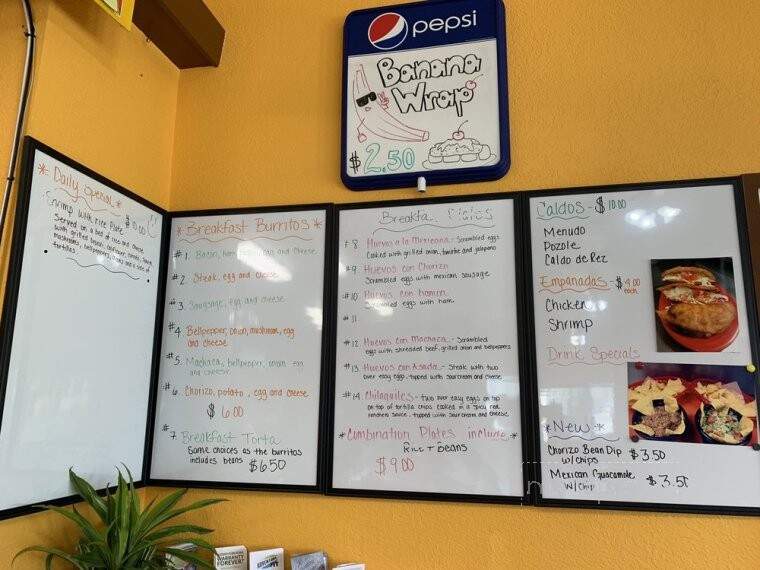 pepsi
Banana
Wrap
$2.50
* Daily Special *
Shrimp with rice Plate $10.00
Served on a bed of rice and cheese,
with grilled onion,
mushrooms, bellpeppers,
tortillas.
* Breakfast Burritos *
#1. Bacon, egg and cheese
#2. Steak, egg and cheese
#3. Sausage, egg and cheese
#4. Bellpepper, onion, mushroom, egg
and cheese
#5. Machaca, bellpepper, onion, egg
and cheese
#6. Chorizo, potato, egg and cheese
$6.00
#7. Breakfast Torta
Same choices as the burritos
includes beans $6.50
Breakfa Plates
#8 Huevos a la Mexicana - Scrambled eggs
Cooked with grilled onion, tomatoe and jalapeno
#9 Huevos con Chorizo
Scrambled eggs with mexican sausage
#10 Huevos con Jamon
Scrambled eggs with ham.
#11
#12. Huevos con Machaca - Scrambled
eggs with shreaded beef, grilled onion and bellpeppers
#13. Huevos con Asada - Steak with two
over easy eggs, topped with sourcream and cheese
#14. Chilaquiles - two over easy eggs on top
on top of tortilla chips cooked in a spicy red
ranchero sauce, topped with sourcream and cheese.
* Combination Plates include *
Rice + Beans
$9.00
Caldos - $10.00
Menudo
Pozole
Caldo de Pez
Empanadas - $4.00
each
Chicken
Shrimp
Drink Specials
* New *
Chorizo Bean Dip $3.50
w/chips
Mexican Guacamole $3.50
w/chip
WARRANTY
FOREVER!